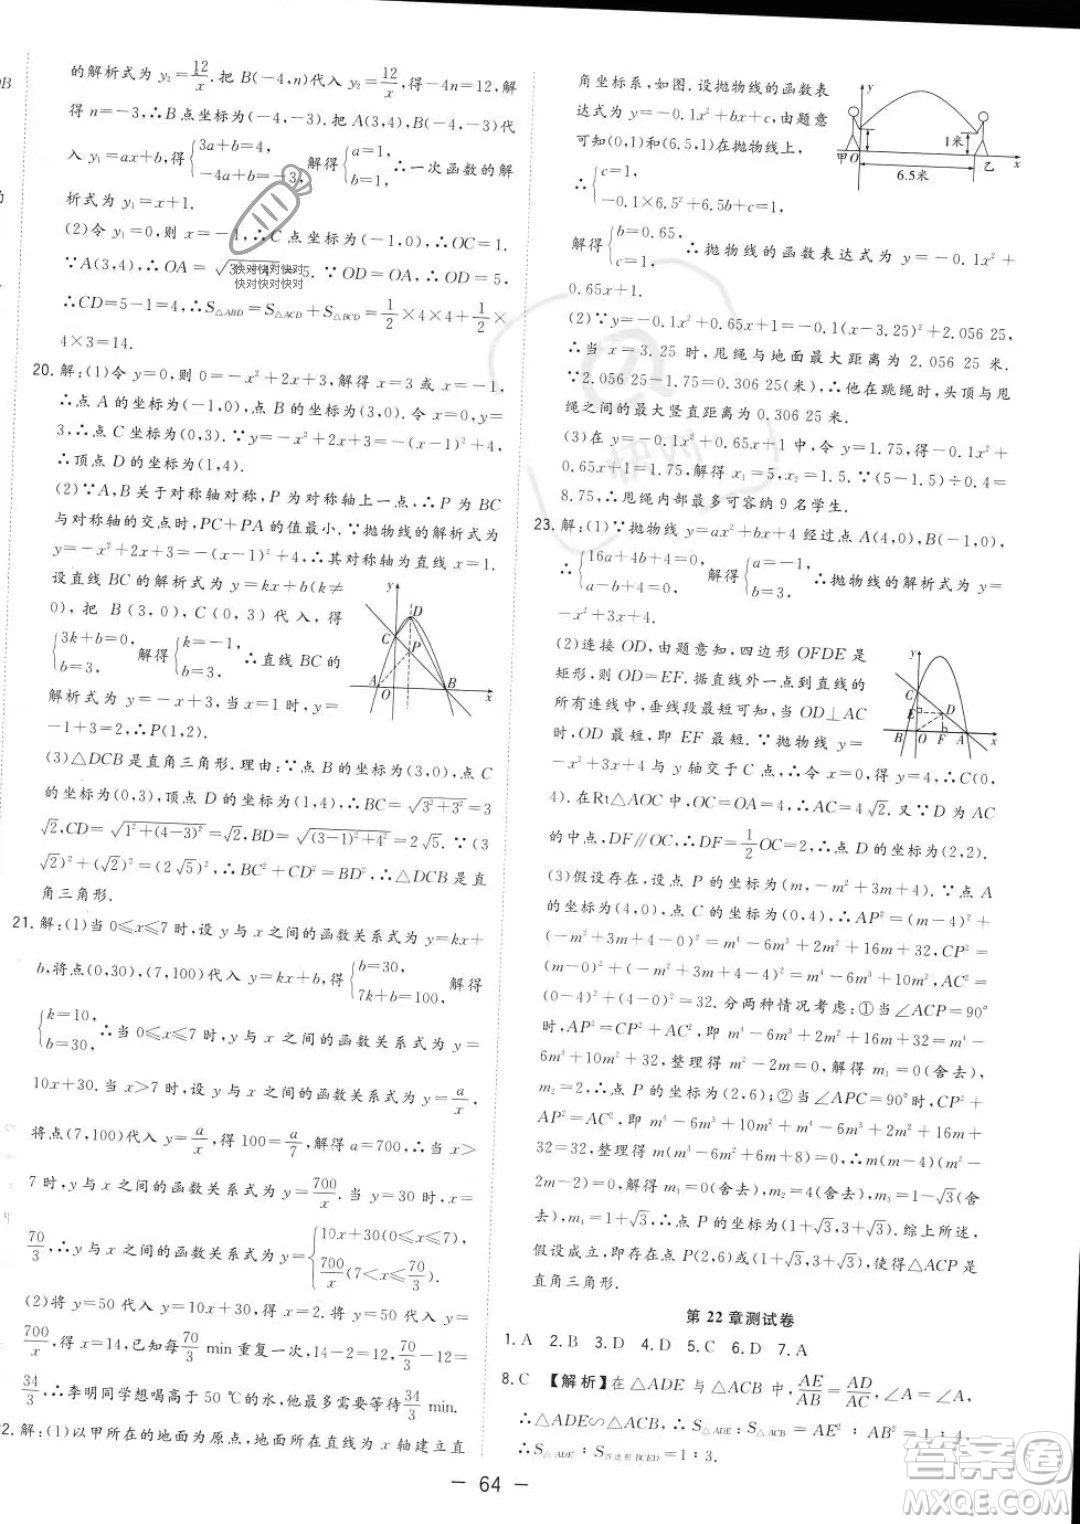 的解析式为 y₂=12/x.把 B(-4,n)代入 y₂=12/x,得-4n=12,解
得 n=-3,∴B 点坐标为(-4,-3).把 A(3,4),B(-4,-3)代
入 y₁=ax+b,得{3a+b=4, -4a+b=-3,解得{a=1, b=1.∴一次函数的解
析式为 y₁=x+1.
(2)令 y₁=0,则 x=-1,∴C 点坐标为(-1,0),∴OC=1.
∵A(3,4),∴OA=
5.∵OD=OA,∴OD=5,
∴CD=5-1=4,∴S△ABD=S△ACD+S△BCD=1/2×4×4+1/2×
4×3=14.
20.解:(1)令 y=0,则 0=-x²+2x+3,解得 x=3 或 x=-1,
∴点 A 的坐标为(-1,0),点 B 的坐标为(3,0).令 x=0,y=
3,∴点 C 坐标为(0,3).∵y=-x²+2x+3=-(x-1)²+4,
∴顶点 D 的坐标为(1,4).
(2)∵A,B 关于对称轴对称,∴P 为对称轴上一点,∴P 为 BC
与对称轴的交点时,PC+PA 的值最小.∵抛物线的解析式为
y=-x²+2x+3=-(x-1)²+4,∴其对称轴为直线 x=1.
设直线 BC 的解析式为 y=kx+b(k≠
0),把 B(3,0),C(0,3)代入,得
{3k+b=0, b=3,解得{k=-1, b=3.∴直线 BC 的
解析式为 y=-x+3.当 x=1 时,y=
-1+3=2,∴P(1,2).
(3)△DCB 是直角三角形.理由:∵点 B 坐标为(3,0),点 C
坐标为(0,3),顶点 D 坐标为(1,4),∴BC=√(3²+3²)=3
√2,CD=√(1²+(4-3)²)=√2,BD=√((3-1)²+4²)=2√5.∵(3
√2)²+(√2)²=(2√5)²,∴BC²+CD²=BD²,∴△DCB 是直
角三角形.
21.解:(1)当 0≤x≤7 时,设 y 与 x 之间的函数关系式为 y=kx+
b,将点(0,30),(7,100)代入 y=kx+b,得{b=30, 7k+b=100.解得
{k=10, b=30.∴当 0≤x≤7 时,y 与 x 之间的函数关系式为 y=
10x+30.当 x>7 时,设 y 与 x 之间的函数关系式为 y=a/x
将点(7,100)代入 y=a/x,得 100=a/7,解得 a=700,∴当 x>
7 时,y 与 x 之间的函数关系式为 y=700/x.当 y=30 时,x=
70/3,∴y 与 x 之间的函数关系式为 y={10x+30(0≤x≤7), 700/x(7<x≤70/3).
(2)将 y=50 代入 y=10x+30,得 x=2,将 y=50 代入 y=
700/x,得 x=14,已知每70/3 min 重复一次,14-2=12,70/3-12=
34/3,∴李明同学想喝高于 50 ℃的水,他最多需要等待34/3 min.
22.解:(1)以甲所在的地面为原点,地面所在直线为 x 轴建立直
角坐标系,如图.设抛物线的函数表
达式为 y=-0.1x²+bx+c,由题意
可知(0,1)和(6.5,1)在抛物线上,
∴{c=1, -0.1×6.5²+6.5b+c=1,
解得{b=0.65, c=1,∴抛物线的函数表达式为 y=-0.1x²+
0.65x+1.
(2)∵y=-0.1x²+0.65x+1=-0.1(x-3.25)²+2.056 25,
∴当 x=3.25 时,甩绳与地面最大距离为 2.056 25 米.
∵2.056 25-1.75=0.306 25(米),∴他在跳绳时,头顶与甩
绳之间的最大竖直距离为 0.306 25 米.
(3)在 y=-0.1x²+0.65x+1 中,令 y=1.75,得-0.1x²+
0.65x+1=1.75,解得 x₁=5,x₂=1.5.∵(5-1.5)÷0.4=
8.75,∴甩绳内部最多可容纳 9 名学生.
23.解:(1)∵抛物线 y=ax²+bx+4 经过点 A(4,0),B(-1,0),
∴{16a+4b+4=0, a-b+4=0,解得{a=-1, b=3.∴抛物线的解析式为 y=
-x²+3x+4.
(2)连接 OD,由题意知,四边形 OFDE是
矩形,则 OD=EF.据直线外一点到直线的
所有连线中,垂线段最短可知,当 OD⊥AC
时,OD 最短,即 EF 最短.∵抛物线 y=
-x²+3x+4 与 y 轴交于 C 点,∴C(0,
4).在Rt△AOC 中,OC=OA=4,∴AC=4√2.又∵D 为 AC
的中点,DF∥OC,∴DF=1/2OC=2,∴点 D 的坐标为(2,2).
(3)假设存在,设点 P 的坐标为(m,-m²+3m+4).∵点 A
的坐标为(4,0),点 C 的坐标为(0,4),∴AP²=(m-4)²+
(-m²+3m+4-0)²=m⁴-6m³+2m²+16m+32,CP²=
(m-0)²+(-m²+3m+4-4)²=m⁴-6m³+10m²,AC²=
(0-4)²+(4-0)²=32.分两种情况考虑:①当∠ACP=90°
时,AP²=CP²+AC²,即 m⁴-6m³+2m²+16m+32=m⁴-
6m³+10m²+32,整理得 m²-2m=0,解得 m₁=0(舍去),
m₂=2,∴点 P 的坐标为(2,6);②当∠APC=90°时,CP²+
AP²=AC²,即 m⁴-6m³+10m²+m⁴-6m³+2m²+16m+
32=32,整理得 m(m³-6m²+6m+8)=0,∴m(m-4)(m²-
2m-2)=0,解得 m₁=0(舍去),m₂=4(舍去),m₃=1-√3(舍
去),m₄=1+√3,∴点 P 的坐标为(1+√3,3+√3).综上所述,
假设成立,即存在点 P(2,6)或(1+√3,3+√3),使得△ACP 是
直角三角形.
第 22 章测试卷
1.A 2.B 3.D 4.D 5.C 6.D 7.A
8.C 【解析】在△ADE 与△ACB 中,AE/AB=AD/AC,∠A=∠A,
∴△ADE∽△ACB,∴S△ADE:S△ACB=AE²:AB²=1:4,
∴S△ADE:S四边形BCED=1:3.
— 64 —
y
C
D
P
A
O
B
x
y
1米
甲O
6.5米
乙
x
y
C
E
D
B
O
F
A
x
快对快对快对
快对快对快对
快对
答案圈
MXQE.COM